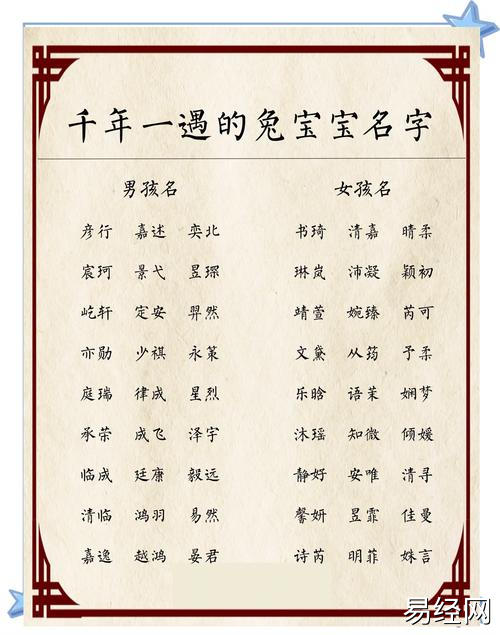 千年一遇的兔宝宝名字
男孩名 女孩名
彦行 嘉述 奕北 书琦 清嘉 晴柔
宸珂 景弋 昱琛 琳岚 沛凝 颖初
屹轩 定安 羿然 靖萱 婉臻 芮可
亦勋 少祺 永策 文黛 从筠 予柔
庭瑞 律成 星烈 乐晗 语茉 娴梦
承荣 成飞 泽宇 沐瑶 知微 倾媛
临成 廷康 毅远 静好 安唯 清寻
清临 鸿羽 易然 馨妍 昱霏 佳曼
嘉逸 越鸿 晏君 诗芮 明菲 姝言
易经网